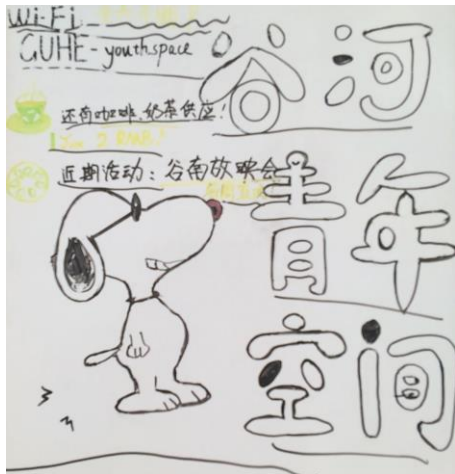 Wi-Fi
GUHE-youthspace
还有咖啡.奶茶供应！
近期活动：谷南放映会
谷河
青年
空间